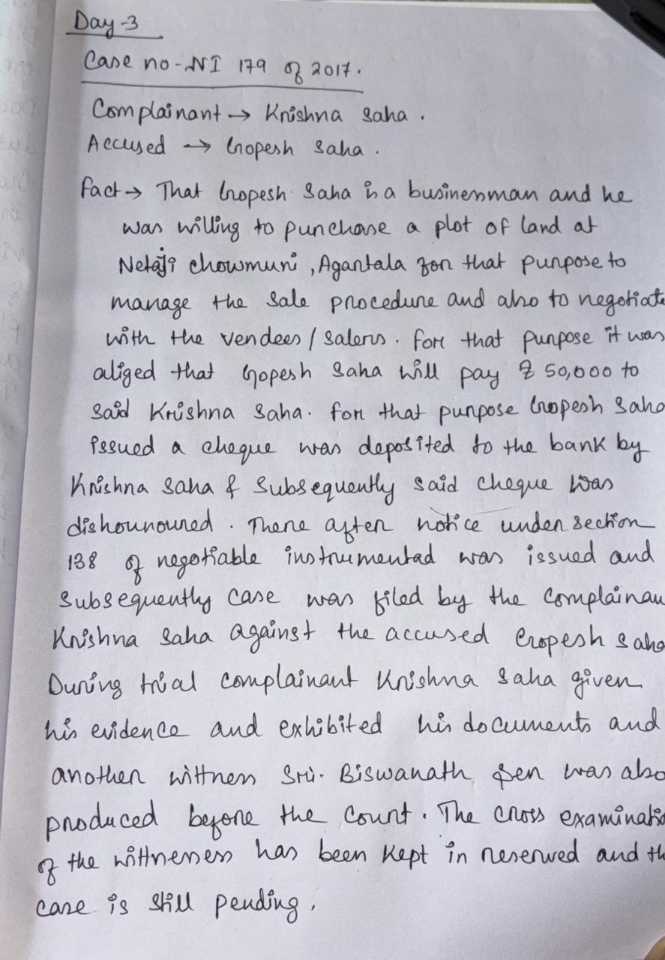 Day-3
Case no-NI 179 of 2017.
Complainant → Krishna Saha.
Accused → Gopesh Saha.
Fact → That Gopesh Saha is a businessman and he
was willing to purchase a plot of land at
Netaji chowmuni, Agartala for that purpose to
manage the sale procedure and also to negotiate
with the vendees/salers. for that purpose it was
aliged that Gopesh Saha will pay ₹ 50,000 to
said Krishna Saha. for that purpose Gopesh Saha
issued a cheque was deposited to the bank by
Krishna Saha & Subsequently said cheque was
dishounoured. There after notice under section
138 of negotiable instrumentad was issued and
Subsequently case was filed by the complainan
Krishna Saha against the accused Gropesh Saha
During trial complainant Krishna Saha given
his evidence and exhibited his documents and
another wittness Sri. Biswanath Sen was also
produced before the court. The cross examinatio
of the wittnesses has been kept in reserved and th
case is still pending.